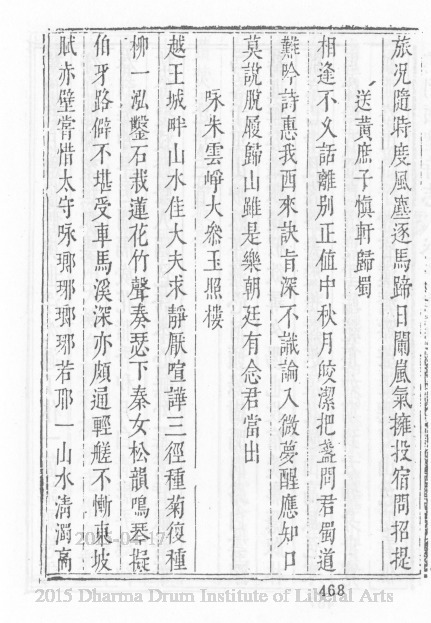 旅况隨時度風塵逐馬蹄日闌嵐氣擁投宿問招提
送黃庶子慎軒歸蜀
相逢不久話離別正值中秋月皎潔把盞問君蜀道
難吟詩惠我西來訣旨深不識論入微夢醒應知口
莫說脫履歸山雖是樂朝廷有念君當出
咏朱雲崢大叅玉照樓
越王城畔山水佳大夫求靜厭喧譁三徑種菊復種
柳一泓鑿石栽蓮花竹聲奏瑟下秦女松韻鳴琴擬
伯牙路僻不堪受車馬溪深亦頗通輕艖不慚東坡
賦赤壁嘗惜太守咏瑯琊瑯琊若耶一山水清濁高
468
2015-04-17
2015 Dharma Drum Institute of Liberal Arts